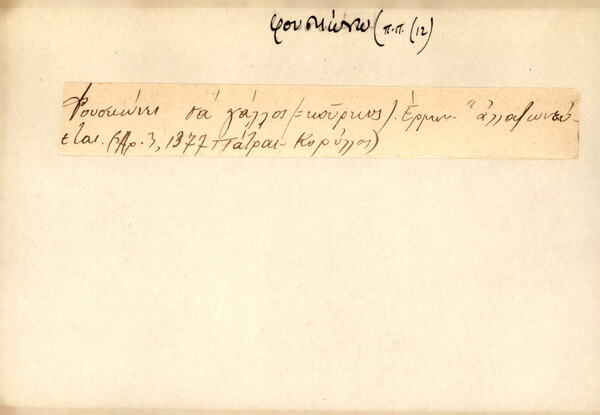 φουσκώνω (π.π. (12)
Φουσκώνει σά γάλλος (= κούρκος). Ερμην. "ἀλλαζωνεύ-
εται. (Ἀρ. 3, 1377 Πάτραι - Κορύλλος)